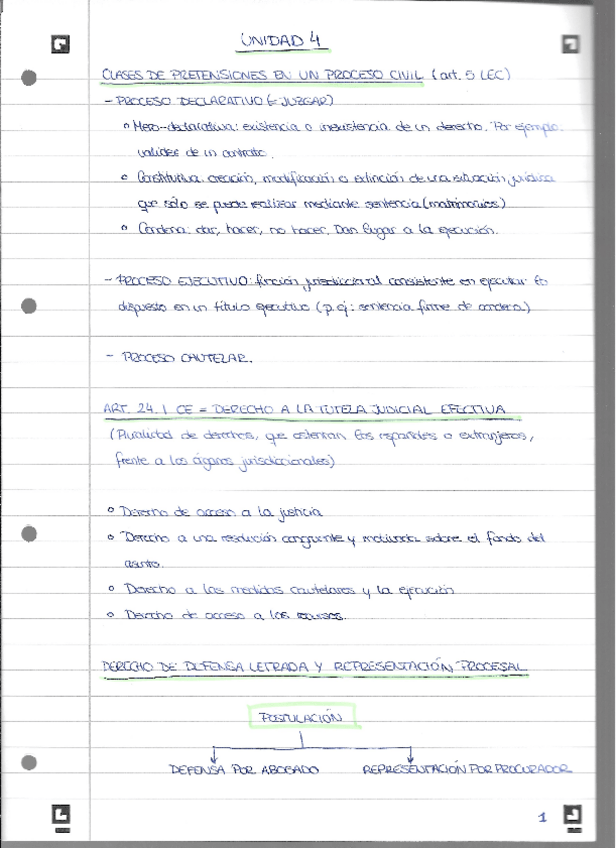 UNIDAD 4
CLASES DE PRETENSIONES EN UN PROCESO CIVIL (art. 5 LEC)
- PROCESO DECLARATIVO (= JUZGAR)
° Mero-declarativa: existencia o inexistencia de un derecho. Por ejemplo:
validez de un contrato.
° Constitutiva: creación, modificación o extinción de una situación jurídica
que sólo se puede realizar mediante sentencia (matrimonios)
° Condena: dar, hacer, no hacer. Dan lugar a la ejecución.
- PROCESO EJECUTIVO: función jurisdiccional consistente en ejecutar lo
dispuesto en un título ejecutivo (p.ej: sentencia firme de condena)
- PROCESO CAUTELAR.
ART. 24.1 CE = DERECHO A LA TUTELA JUDICIAL EFECTIVA
(Pluralidad de derechos, que ostentan los españoles o extranjeros,
frente a los órganos jurisdiccionales)
° Derecho de acceso a la justicia
° Derecho a una resolución congruente y motivada sobre el fondo del
asunto.
° Derecho a las medidas cautelares y la ejecución
° Derecho de acceso a los recursos.
DERECHO DE DEFENSA LETRADA Y REPRESENTACIÓN PROCESAL
POSTULACIÓN
DEFENSA POR ABOGADO REPRESENTACIÓN POR PROCURADOR
1